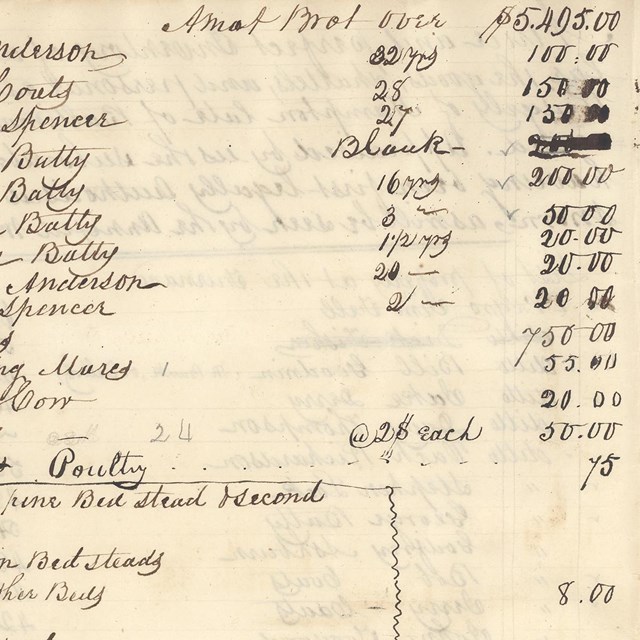 Amot Brot over $5.495.00
nderson 32 yrs 100.00
Couts 28 150 00
Spencer 27 150
Batty Blank —
Batty 16 yrs 200.00
Batty 3 — 50.00
Batty 1 1/2 yrs 20.00
Anderson 20 — 20.00
Spencer 2 — 20 00
750 00
ng Mares 1 55.00
Cow 20.00
24 @ 2$ each 50.00
Poultry 75
pine Bed stead & second
n Bed steads
ther Beds 8.00